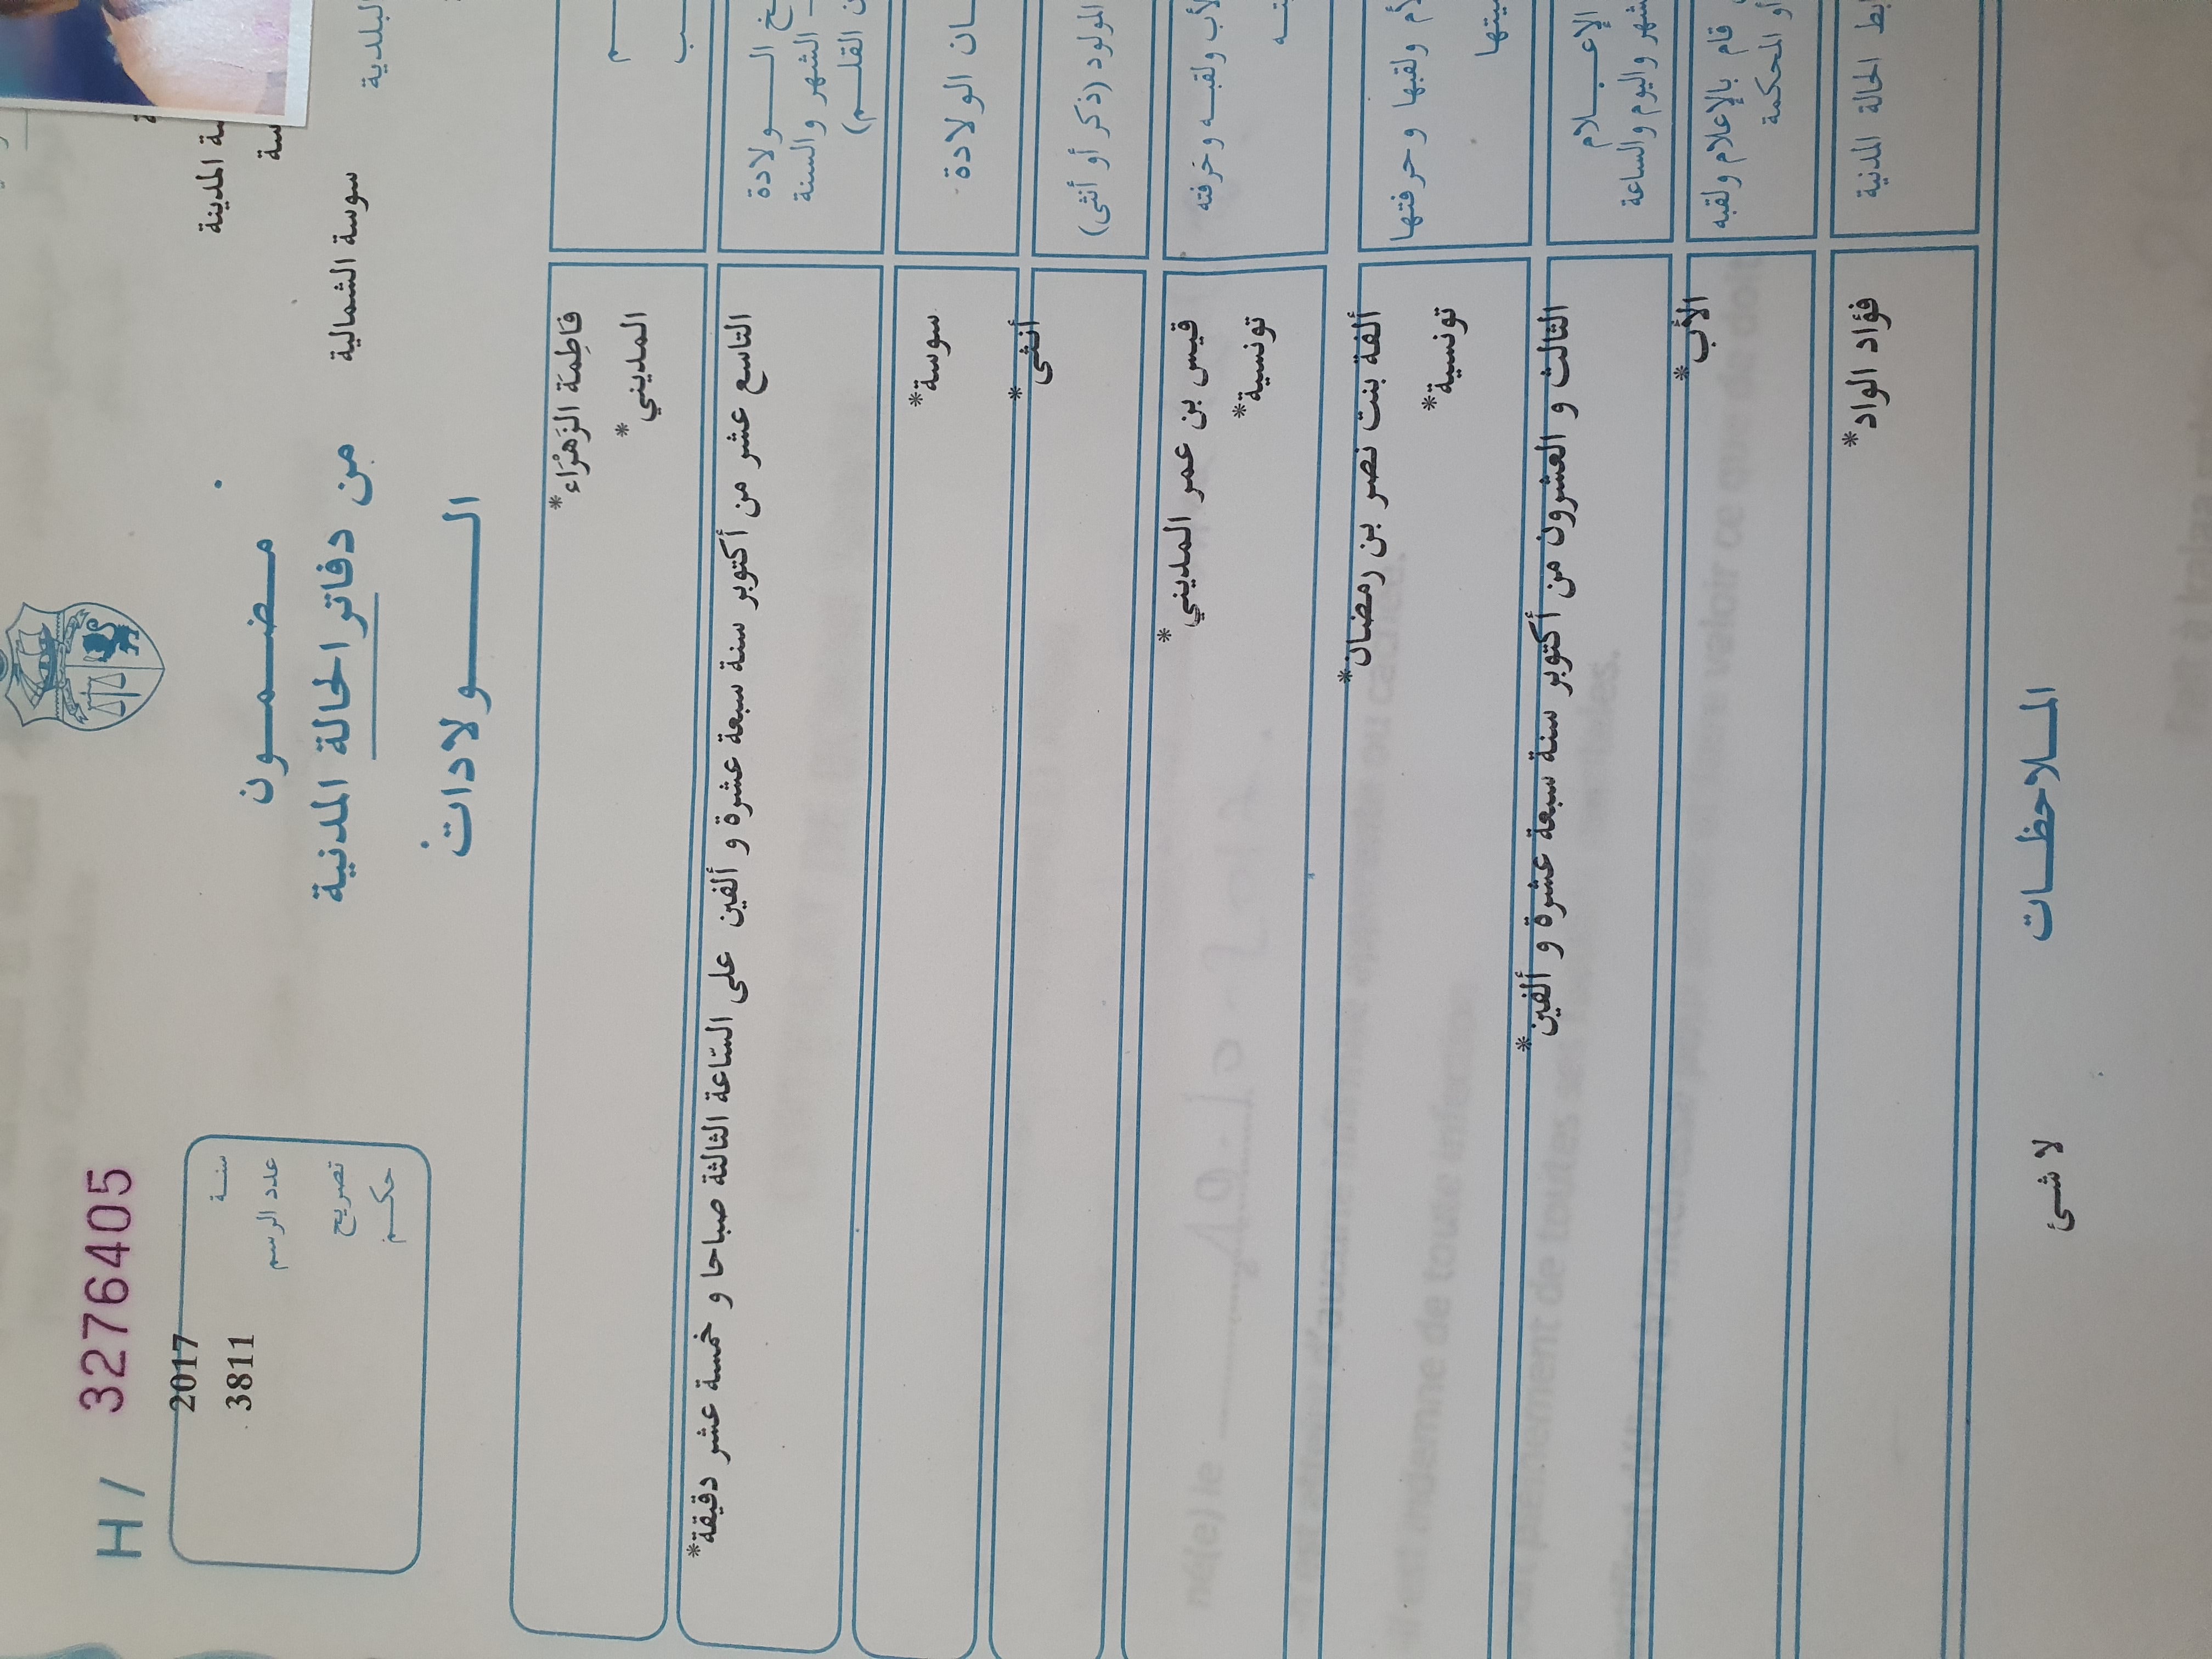 H / 3276405
2017 سنة
3811 عدد الرسم
تصريح
حكم
مضمون
من دفاتر الحالة المدنية
الولادات
المدينة
سوسة الشمالية
البلدية
فَاطِمَة الزَهْرَاء*
المديني*
الولادة
الشهر والسنة
القلم)
التاسع عشر من أكتوبر سنة سبعة عشرة و ألفين على السّاعة الثالثة صباحا و خمسة عشر دقيقة*
الولادة
سوسة*
المولود (ذكر أو أنثى)
أنثى*
ولقبه وحرفته
قيس بن عمر المديني*
تونسية*
ولقبها وحرفتها
ألفة بنت نصر بن رمضان*
تونسية*
الإعلام
واليوم والساعة
الثالث و العشرون من أكتوبر سنة سبعة عشرة و ألفين*
قام بالإعلام ولقبه
أو المحكمة
الأب*
الحالة المدنية
فؤاد الواد*
الملاحظات
لا شئ